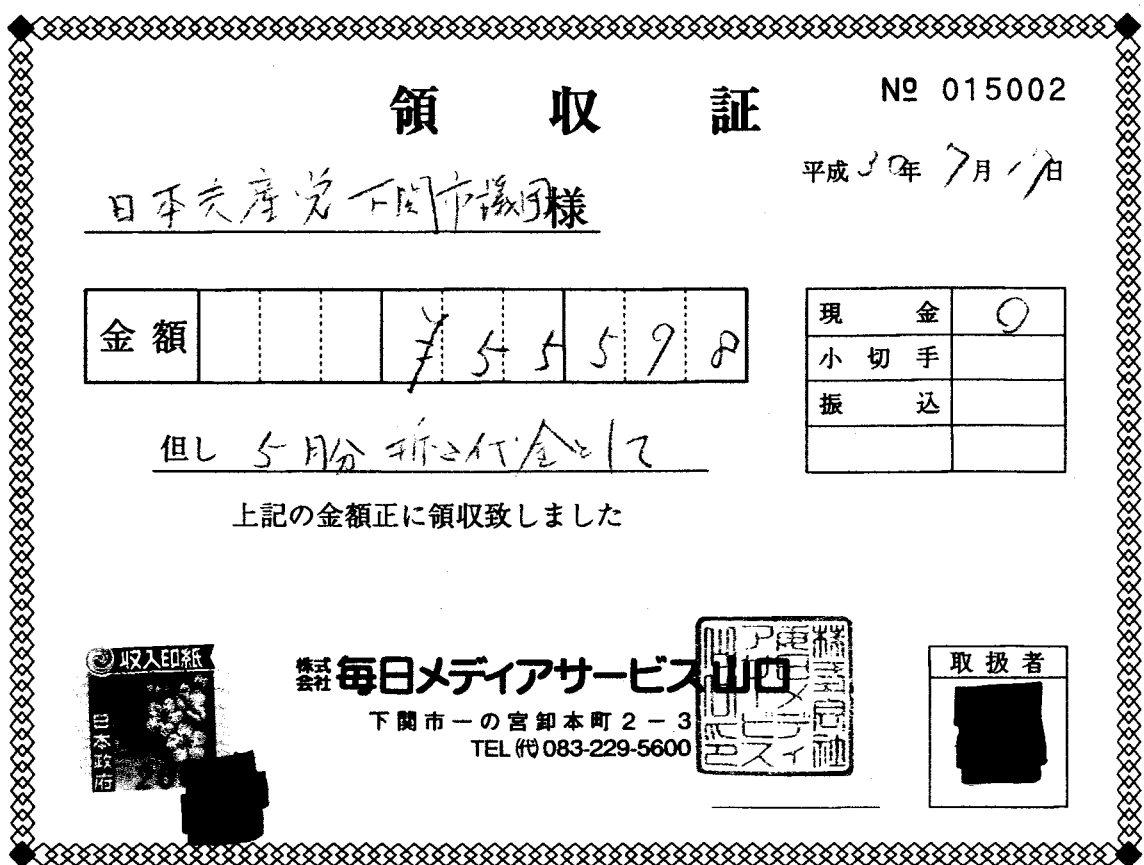 領収証
№ 015002
平成30年7月19日
日本共産党下関市議団様
金額 ¥55598
現金 〇
小切手
振込
但し 5月分折込代金として
上記の金額正に領収致しました
収入印紙
日本政府
株式会社 毎日メディアサービス山口
下関市一の宮卸本町2-3
TEL(代)083-229-5600
株式会社毎日メディアサービス山口之印
取扱者